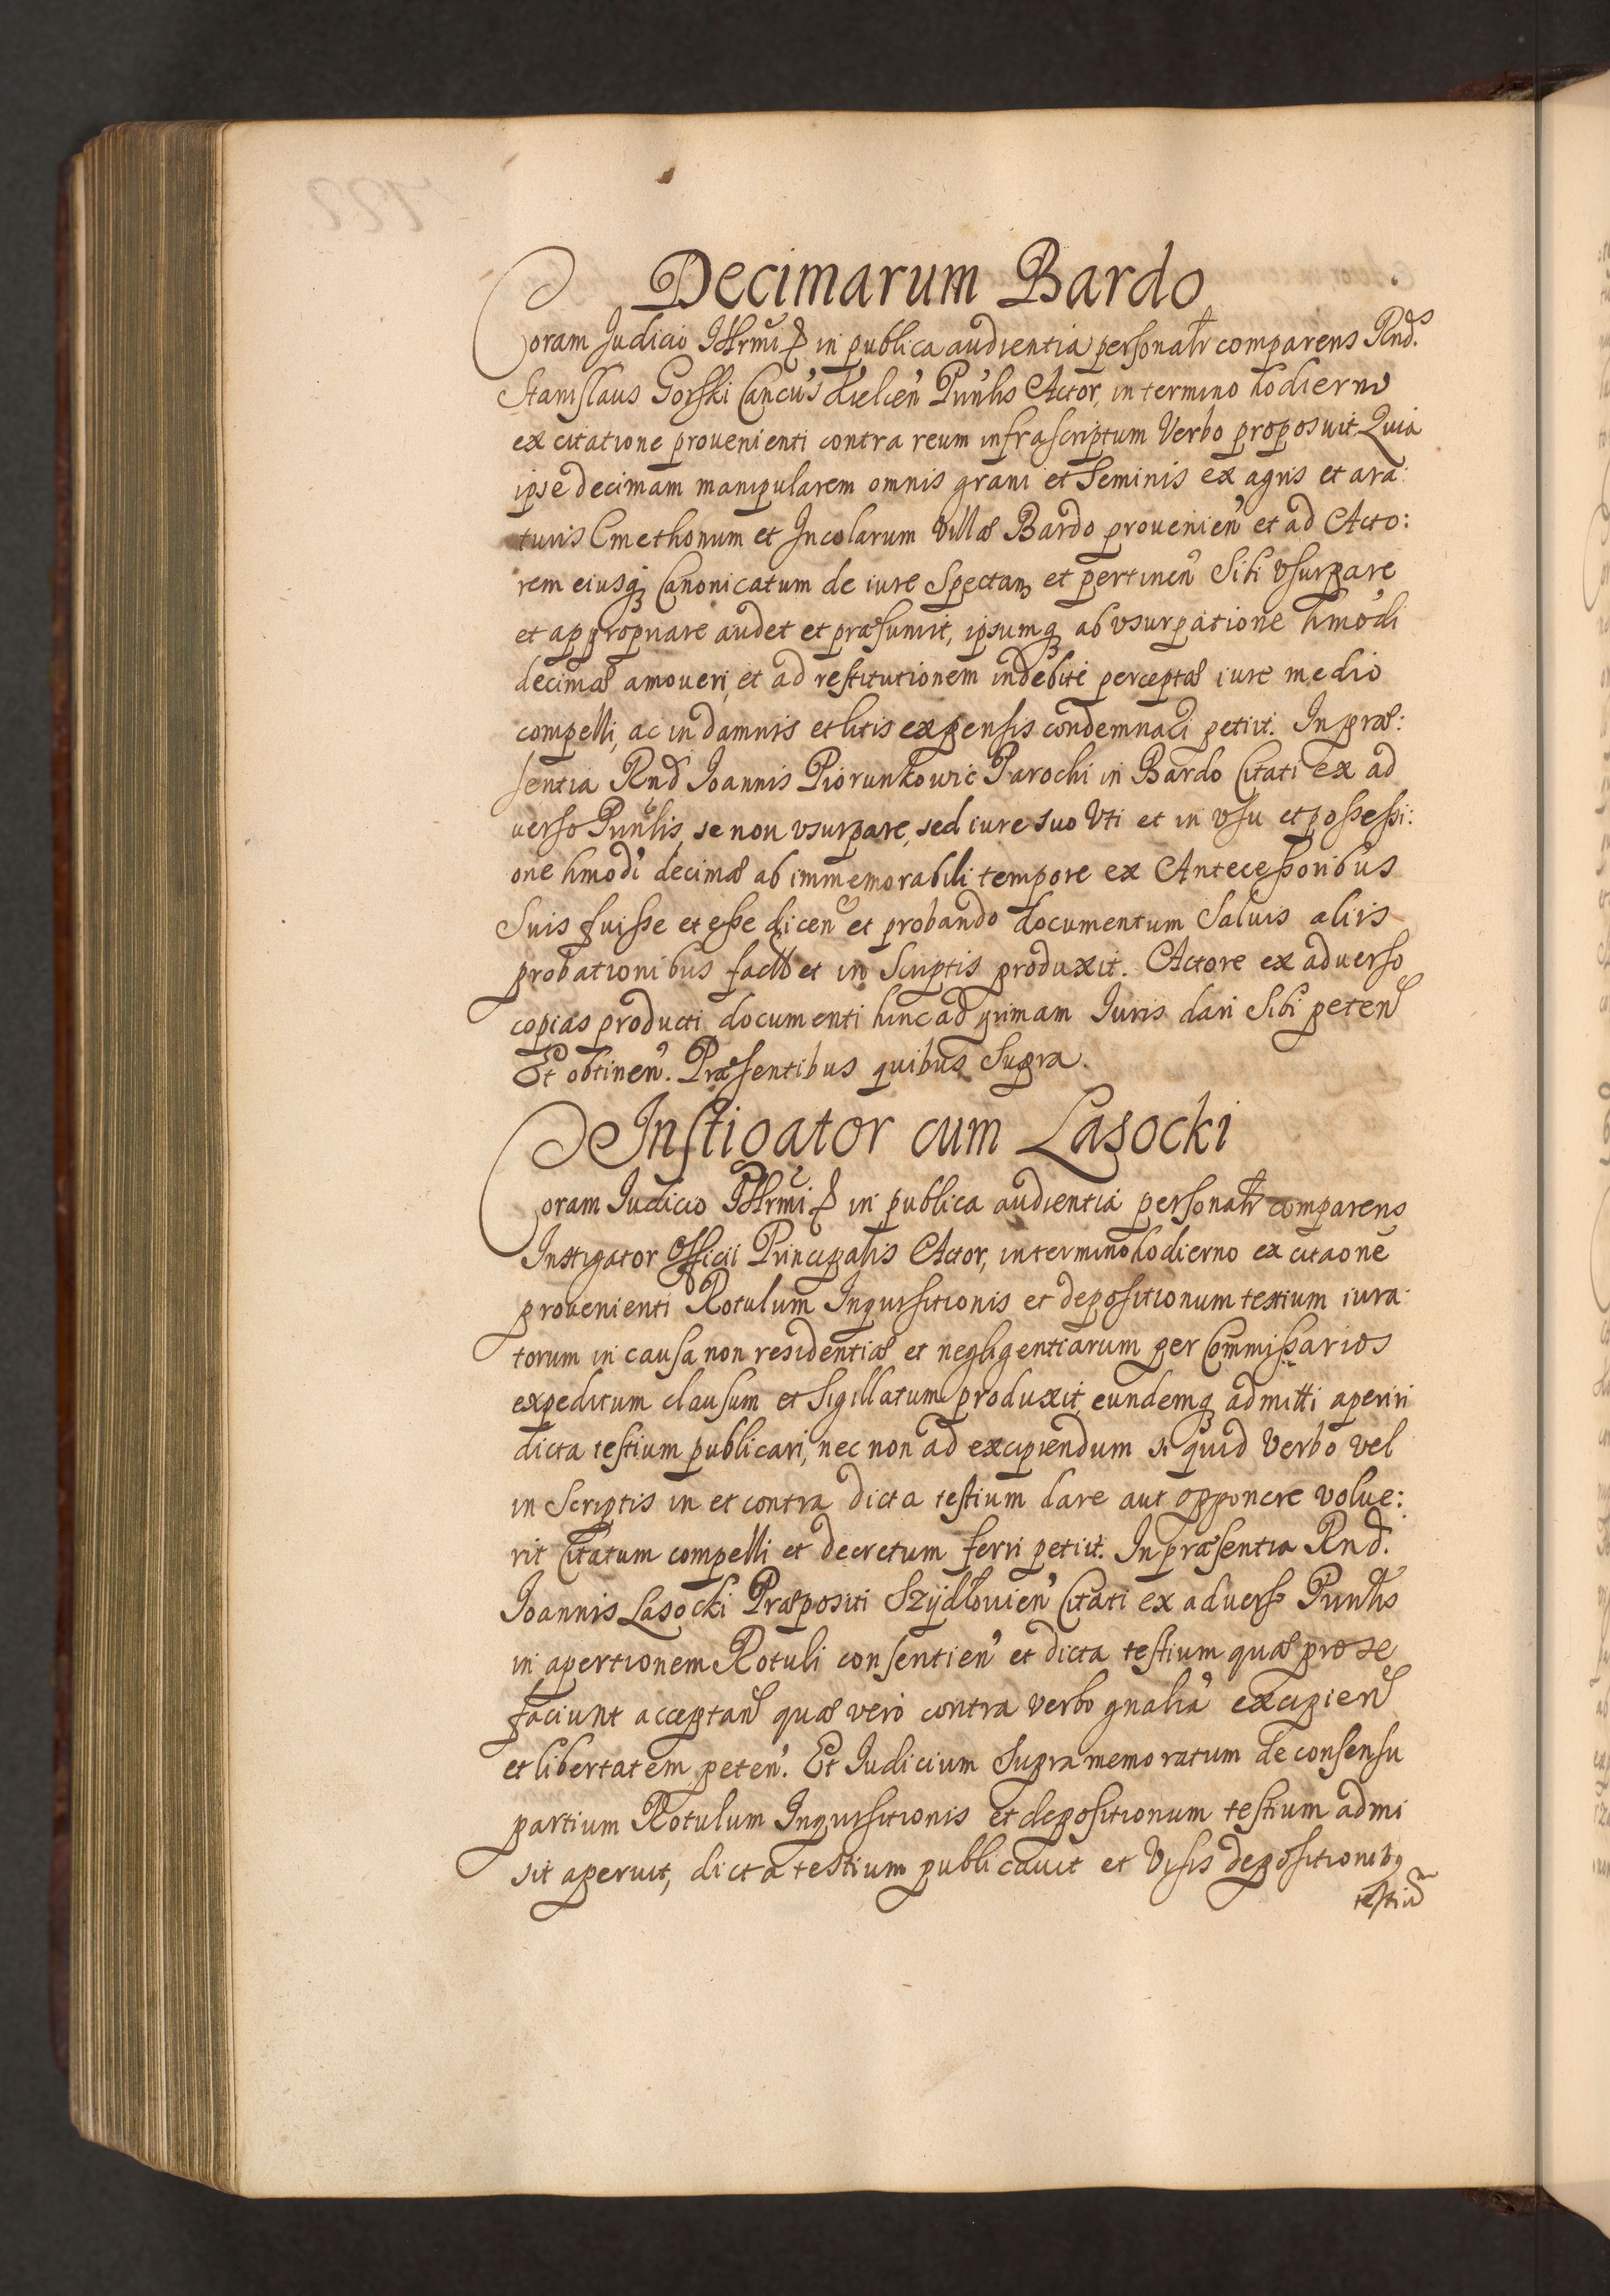 Decimarum Bardo
Coram Judicio Illrmi in publica audientia personalr comparens Rnds.
Stanislaus Gorski Cancus Kielcen Punlis Actor, in termino hodierno
ex citatione prouenienti contra reum infrascriptum Verbo proposuit. Quia
ipse decimam manipularem omnis grani et Seminis ex agris et ara:
turis Cmethonum et Incolarum Villæ Bardo prouenien' et ad Acto:
rem eiusq; Canonicatum de iure Spectan et pertinen' Sibi vsurpare
et appropriare audet et præsumit, ipsumq; ab vsurpatione hmodi
decimæ amoueri, et ad restitutionem indebite perceptæ iure medio
compelli, ac in damnis et litis expensis condemnari petiit. In præ:
sentia Rnd Joannis Piorunkowic Parochi in Bardo Citati ex ad
uerso Punlis, se non vsurpare, sed iure suo Vti et in vsu et possessi:
one hmodi decimæ ab immemorabili tempore ex Antecessoribus
Suis fuisse et esse dicen et probando documentum Saluis aliis
probationibus facto et in Scriptis produxit. Actore ex aduerso
copias producti documenti hinc ad primam Juris dari Sibi peten
Et obtinen'. Præsentibus quibus Supra.
Instigator cum Lasocki
Coram Judicio Illrmi in publica audientia personalr comparens
Instigator Officii Principalis Actor, in termino hodierno ex citaone
prouenienti Rotulum Inquisitionis et depositionum testium iura:
torum in causa non residentiæ et negligentiarum per Commissarios
expeditum clausum et Sigillatum produxit, eundemq; admitti aperiri
dicta testium publicari, nec non ad excipiendum si quid Verbo vel
in Scriptis in et contra dicta testium dare aut opponere volue:
rit Citatum compelli et decretum ferri petiit. In præsentia Rnd.
Joannis Lasocki Præpositi Szydlouien' Citati ex aduerso Punlis
in apertionem Rotuli consentien' et dicta testium quæ pro se
faciunt acceptan quæ vero contra verbo gnalia excipien
et libertatem peten'. Et Judicium Supra memoratum de consensu
partium Rotulum Inquisitionis et depositionum testium admi
sit aperuit, dicta testium publicauit et Visis depositionibq
testiu